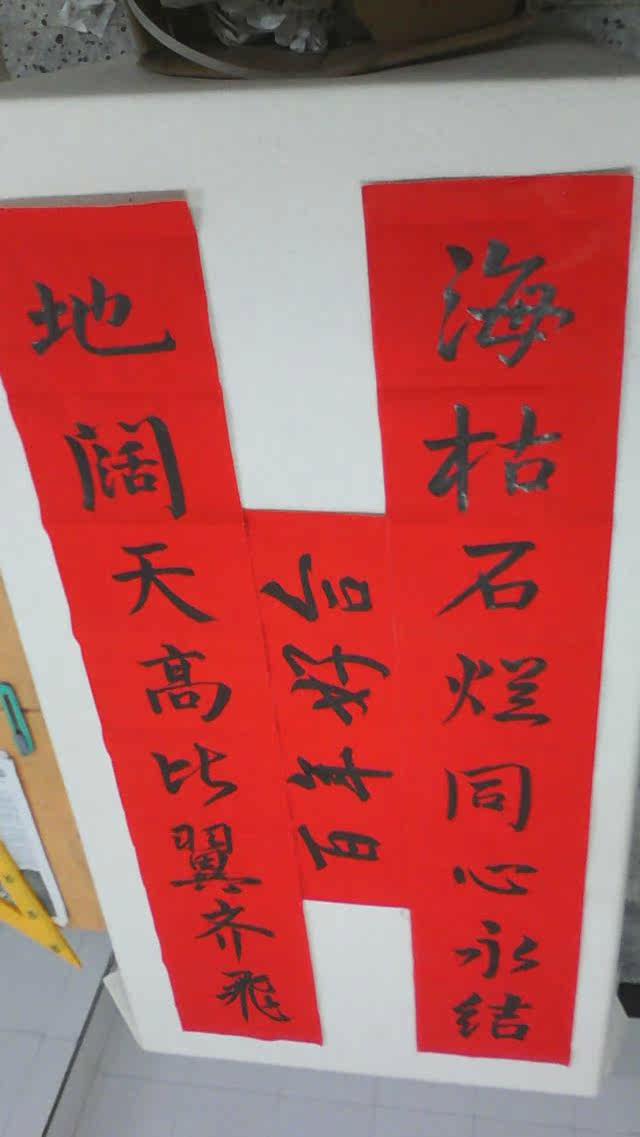 海枯石烂同心永结
地阔天高比翼齐飞
百年好合